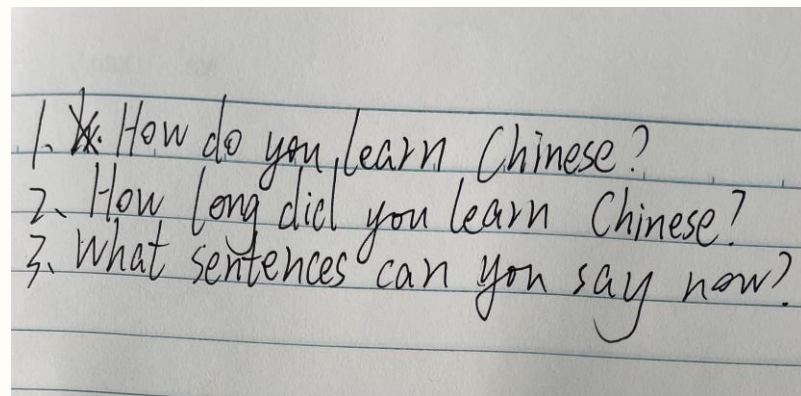 1. How do you learn Chinese?
2、How long did you learn Chinese?
3、What sentences can you say now?